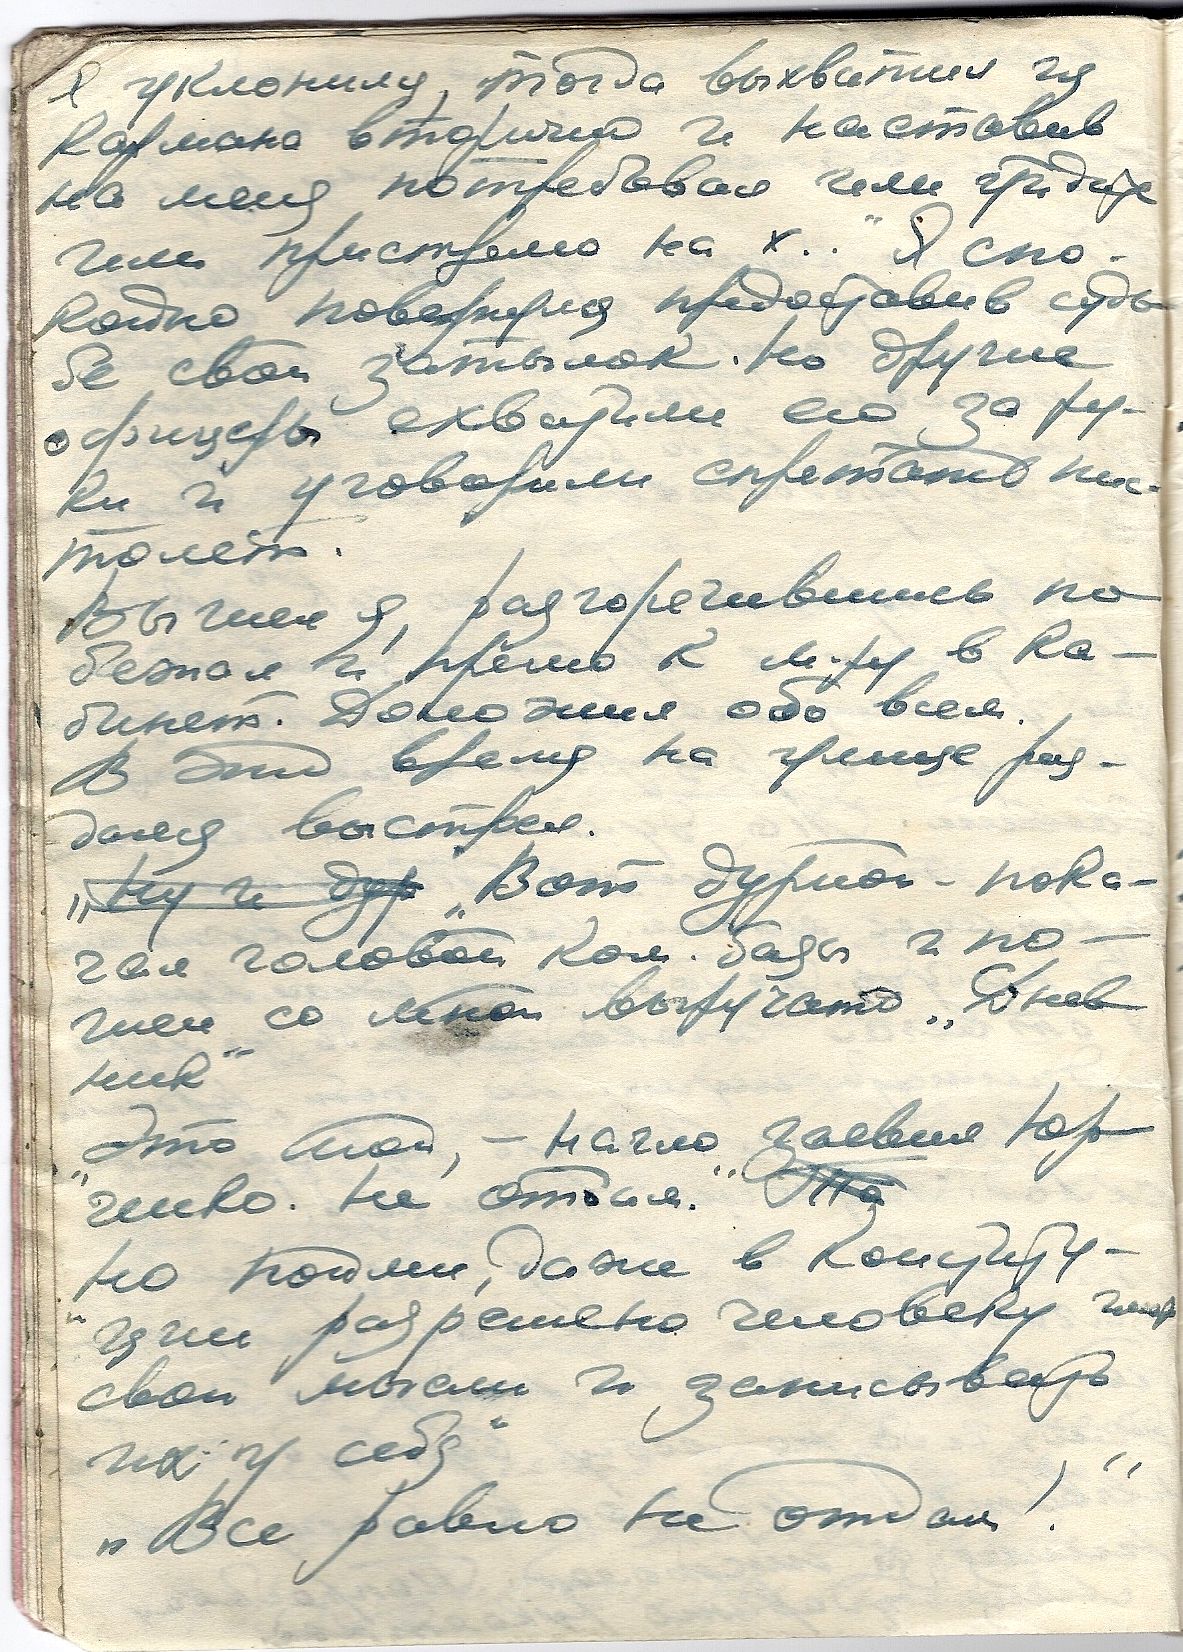 Я уклонился, тогда выхватил из
кармана вторично и наставив
на меня потребовал или уйдите
или пристрелю на х.." Я спо-
койно повернулся предоставив судь-
бе свой затылок. Но другие
офицеры схватили его за ру-
ки и уговорили спрятать пис-
толет.
Вышел я, разгорячившись по
бежал и прямо к м-ру в ка-
бинет. Доложил обо всем.
В это время на улице раз-
дался выстрел.
„Ну и дур „Вот дурной - пока-
чал головой ком. базы и по-
шел со мной выручать „Днев
ник"
„Это мой, - нагло заявил Юр
ченко. Не отдам." То
„Но пойми, даже в Конститу-
ции разрешено человеку иметь
свои мысли и записывать
их у себя"
„Все равно не отдам!"